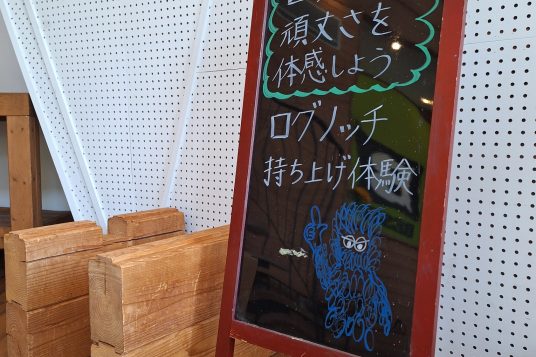 頑丈さを
体感しよう
ログノッチ
持ち上げ体験